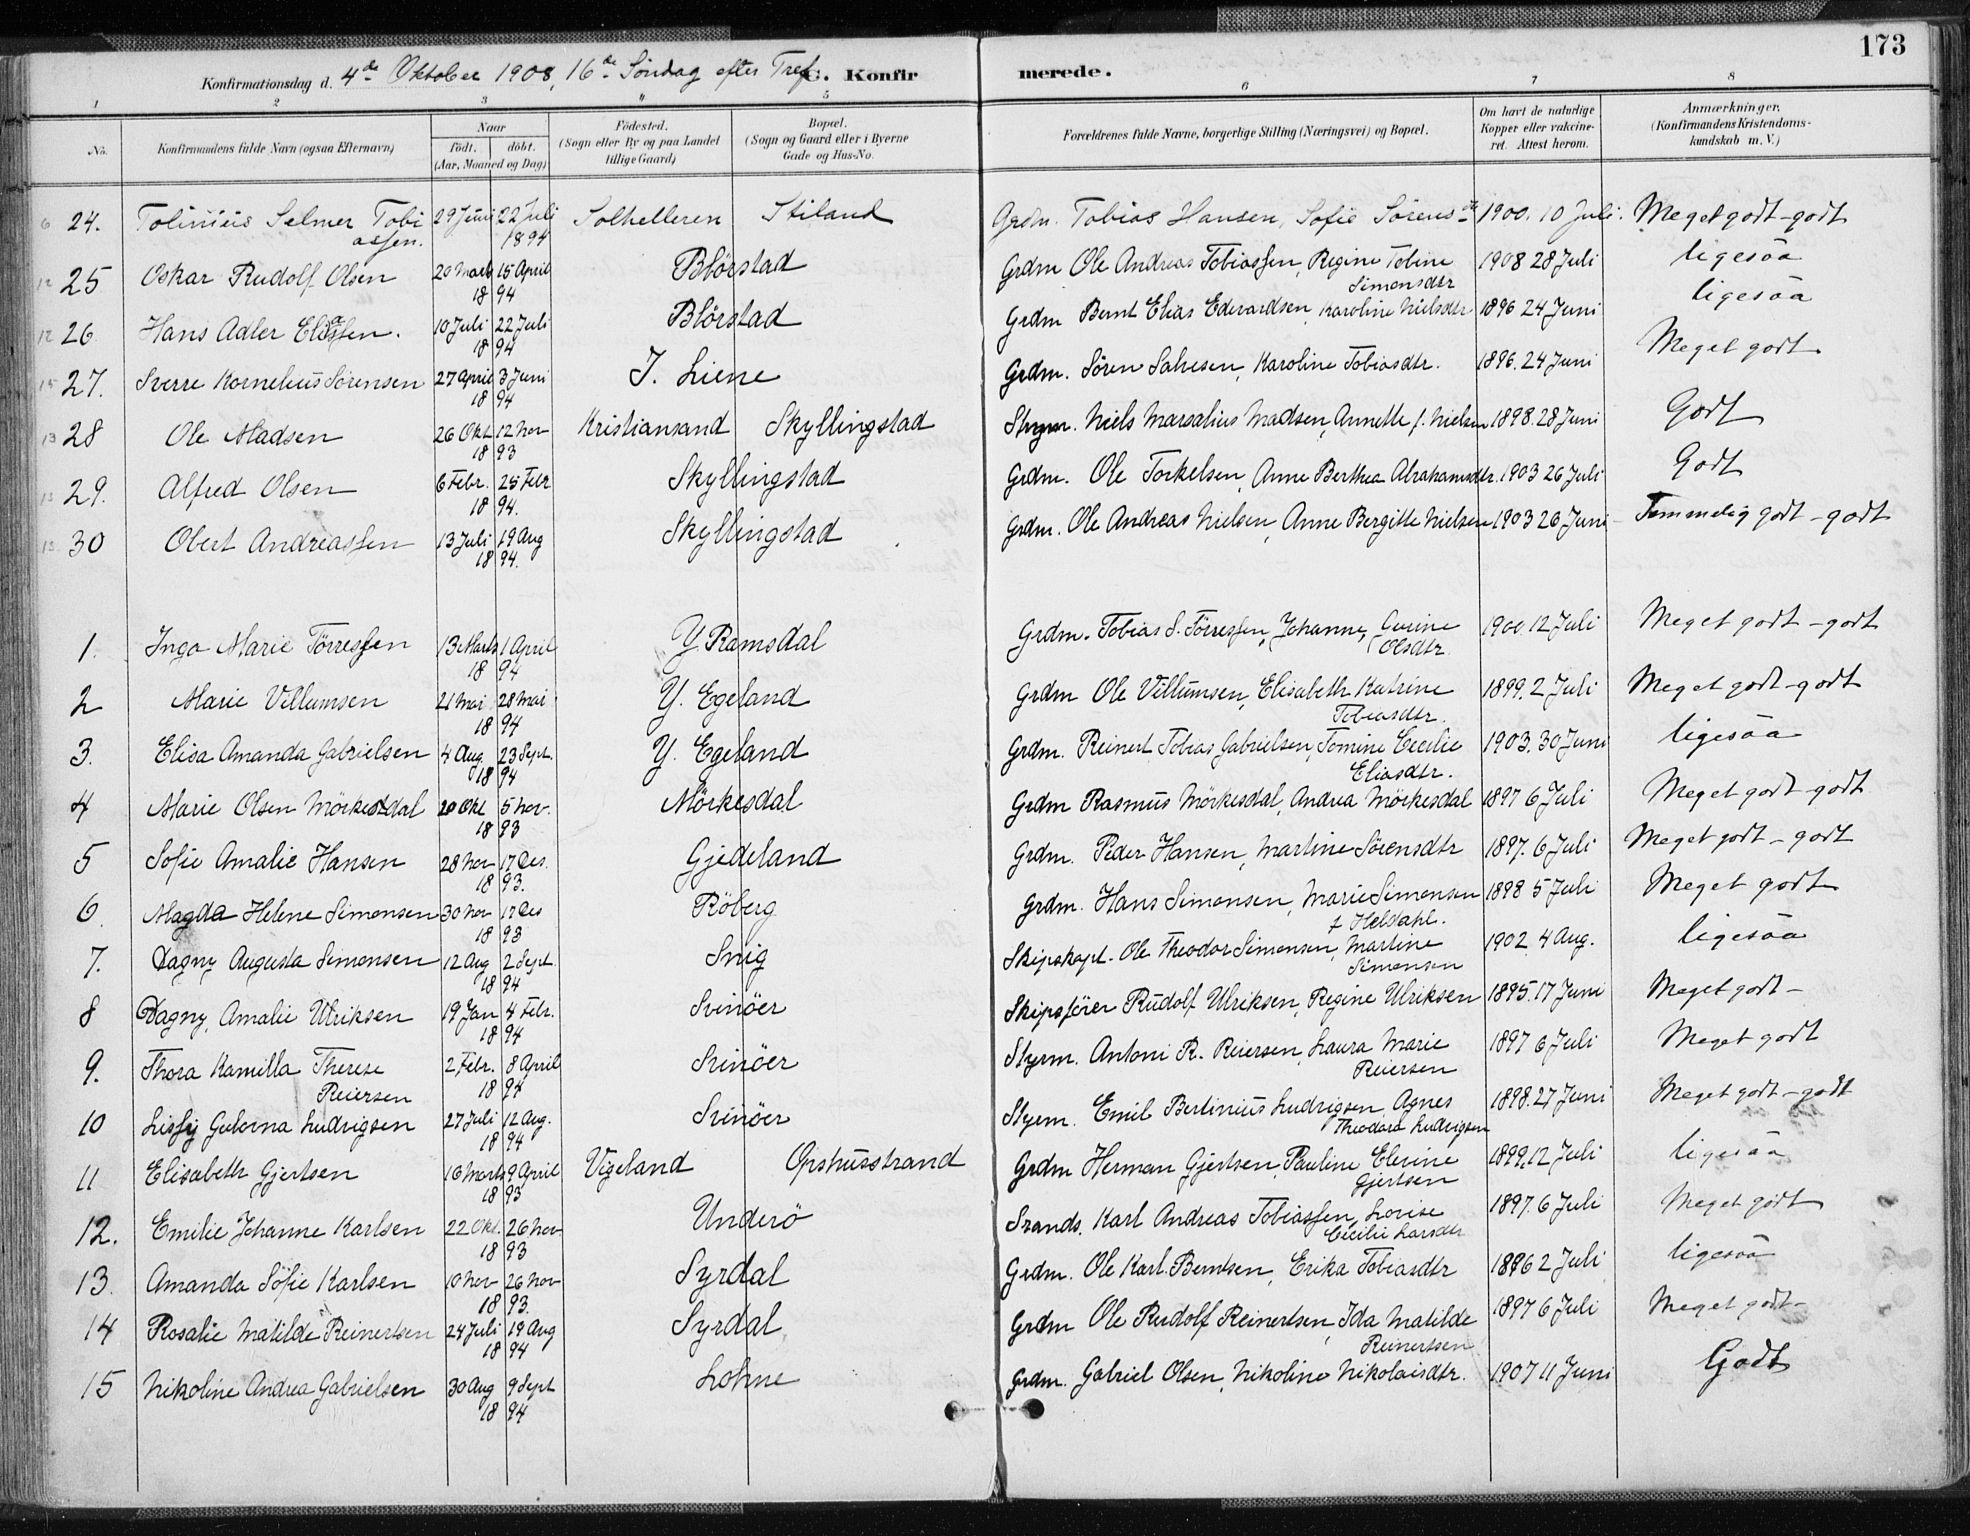 173
Konfirmationsdag d. 4de Oktober 1908, 16de Söndag efter Tref. C. Konfirmerede.
1 2 3 4 5 6 7 8
No. Konfirmandens fulde Navn (ogsaa Efternavn) Naar födt. döbt. (Aar, Maaned og Dag) Födested. (Sogn eller By og paa Landet tillige Gaard) Bopæl. (Sogn og Gaard eller i Byerne Gade og Hus-No. Forældrenes fulde Navne, borgerlige Stilling (Næringsvei) og Bopæl. Om havt de naturlige Kopper eller vakcineret. Attest herom. Anmærkninger. (Konfirmandens Kristendomskundskab m. V.)
6 24. Tolinius Selmer Tobiassen. 29 Juni 22 Juli 1894 Solhelleren Stiland Grdm. Tobias Hansen, Sofie Sörensdtr 1900. 10 Juli. Meget godt - godt
12 25 Oskar Rudolf Olsen 20 Marts 15 April 1894 Blörstad Grdm Ole Andreas Tobiassen, Regine Toline Simonsdtr 1908 28 Juli ligesaa
12 26 Hans Adler Eliassen. 10 Juli 22 Juli 1894 Blörstad Grdm Bernt Elias Edvardsen, Karoline Nielsdtr 1896 24 Juni ligesaa
15 27. Sverre Kornelius Sörensen 27 April 3 Juni 1894 I. Liene Grdm. Sören Salvesen, Karoline Tobiasdtr. 1896. 24 Juni Meget godt
13 28 Ole Madsen 26 Okt 12 Nov 1893 Kristiansand Skyllingstad Styrm. Niels Marsalius Madsen, Annette f. Nielsen 1898. 28 Juni Godt
13 29. Alfred Olsen 6 Febr. 25 Febr 1894. Skyllingstad Grdm. Ole Torkelsen, Anne Berthea Abrahamsdtr. 1903 26 Juli Godt
13 30 Obert Andreassen 13 Juli 19 Aug 1894. Skyllingstad Grdm. Ole Andreas Nielsen, Anne Bergitte Nielsen 1903 26 Juni Temmelig godt - godt
1. Inga Marie Törressen 13 Marts 1 April 1894 Y Ramsdal Grdm. Tobias S. Törressen, Johanne, Gurine Olsdtr. 1900. 12 Juli Meget godt - godt
2 Marie Villumsen 21 Mai 28 Mai 1894 Y. Egeland Grdm Ole Villumsen, Elisabeth Katrine Tobiasdtr. 1899. 2 Juli Meget godt - godt
3. Elisa Amanda Gabrielsen 4 Aug. 23 Sept. 1894 Y. Egeland Grdm. Reinert Tobias Gabrielsen, Tomine Cecilie Eliasdtr. 1903. 30 Juni ligesaa
4 Marie Olsen Mörkesdal 20 Okt 5 Nov. 1893 Mörkesdal Grdm Rasmus Mörkesdal, Andrea Mörkesdal 1897 6 Juli Meget godt - godt
5 Sofie Amalie Hansen 28 Nov 17 Des. 1893. Gjedeland Grdm. Peder Hansen, Martine Sörensdtr 1897. 6 Juli Meget godt - godt
6. Magda Helene Simonsen 30 Nov 17 Des 1893 Röberg Grdm. Hans Simonsen, Marie Simonsen f. Heldahl. 1898 5 Juli Meget godt
7. Dagny Augusta Simonsen 12 Aug 2 Sept. 1894 Snig Skipskapt. Ole Theodor Simonsen, Martine Simonsen 1902. 4 Aug. ligesaa
8 Dagny Amalie Ulriksen 19 Jan 4 Febr. 1894 Svinöer Skipsförer Rudolf Ulriksen, Regine Ulriksen 1895. 17 Juni Meget godt -
9. Thora Kamilla Therese Reiersen 2 Febr. 8 April 1894 Svinöer Styrm. Antoni R. Reiersen, Laura Marie Reiersen 1897 6 Juli Meget godt
10 Lissy Gulorna Ludvigsen 27 Juli 12 Aug. 1894 Svinöer Styrm. Emil Bertinius Ludvigsen, Agnes Theodora Ludvigsen 1898. 27 Juni Meget godt - godt
11 Elisabeth Gjertsen 16 Marts 9 April 1893 Vigeland Opshusstrand Grdm Herman Gjertsen, Pauline Elevine Gjertsen 1899. 12 Juli ligesaa
12. Emilie Johanne Karlsen 22 Okt. 26 Nov 1893 Underö Srands. Karl Andreas Tobiassen, Lovise Cecilie Larsdtr 1897. 6 Juli Meget godt
13. Amanda Sofie Karlsen 10 Nov 26 Nov 1893. Syrdal Grdm. Ole Karl Berntsen, Erika Tobiasdtr 1896 2 Juli ligesaa
14 Rosalie Matilde Reinertsen 24 Juli 19 Aug 1894 Syrdal Grdm Ole Rudolf Reinertsen, Ida Matilde Reinertsen 1897 6 Juli Meget godt -
15 Nikoline Andrea Gabrielsen 30 Aug 9 Sept 1894 Lohne Grdm. Gabriel Olsen, Nikoline Nikolaisdtr. 1907 11 Juni Godt